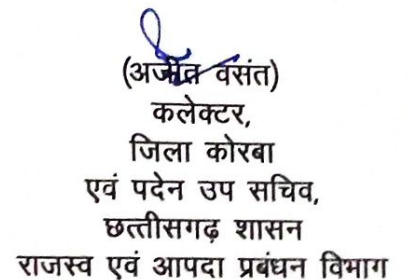 (अजीत वसंत)
कलेक्टर,
जिला कोरबा
एवं पदेन उप सचिव,
छत्तीसगढ़ शासन
राजस्व एवं आपदा प्रबंधन विभाग